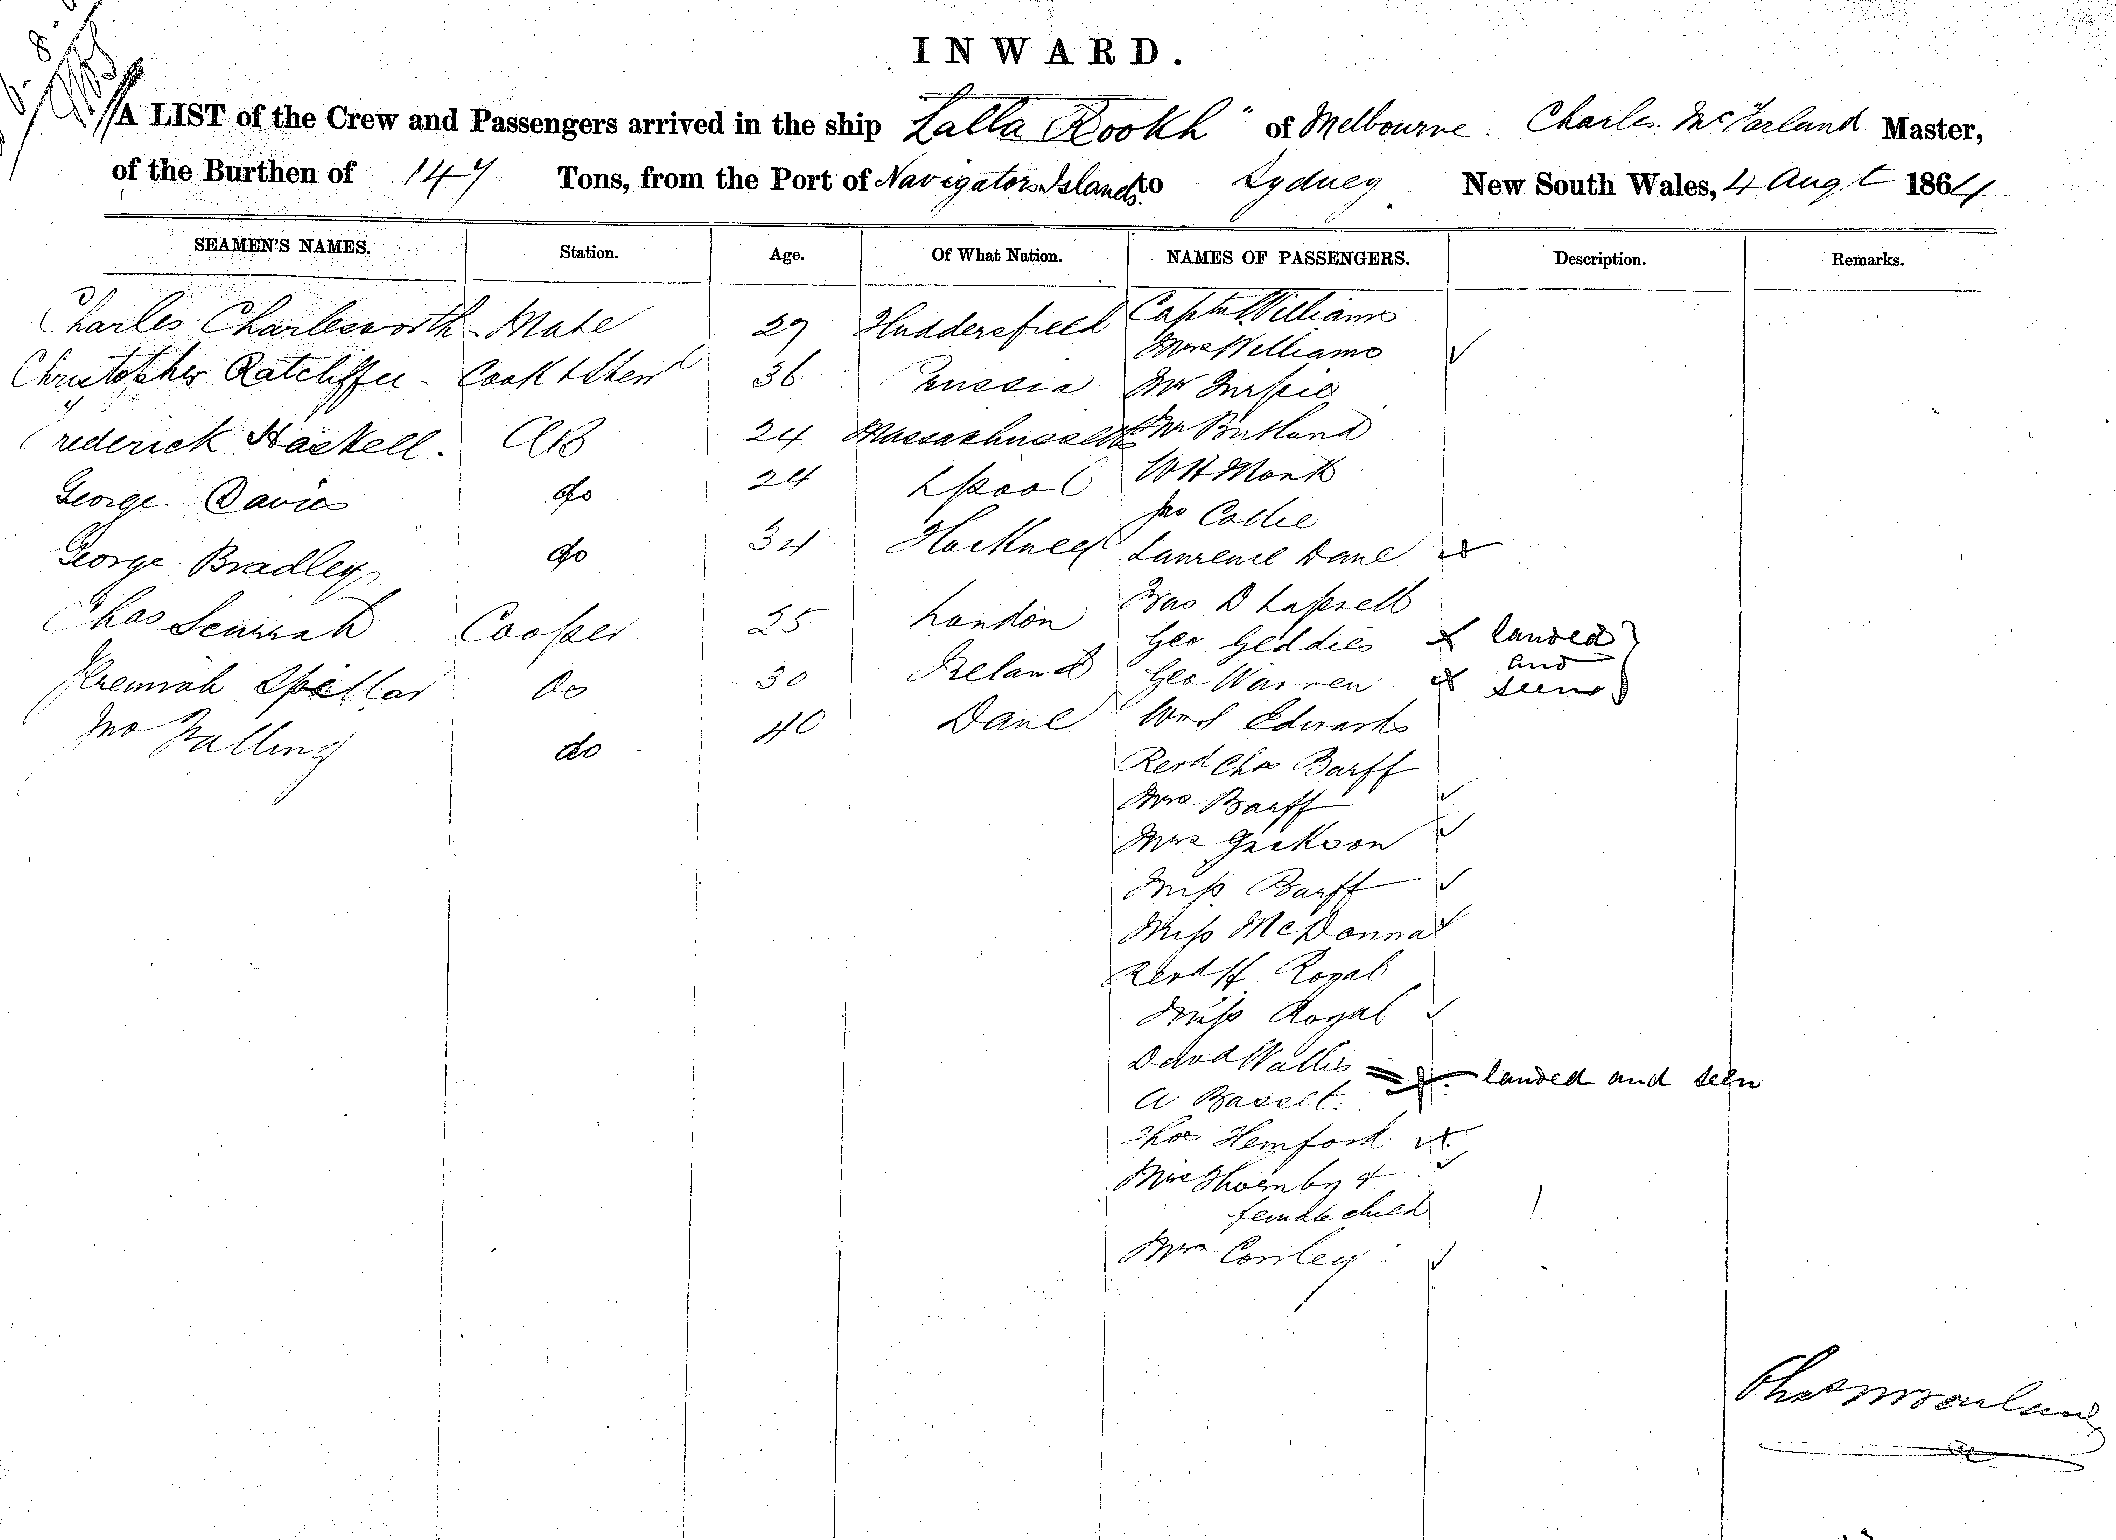 INWARD.
A LIST of the Crew and Passengers arrived in the ship "Lalla Rookh" of Melbourne. Charles McFarland Master,
of the Burthen of 147 Tons, from the Port of Navigators Islands to Sydney New South Wales, 4 Augt 1864
SEAMEN'S NAMES. Station. Age. Of What Nation. NAMES OF PASSENGERS. Description. Remarks.
Charles Charlesworth Mate 29 Huddersfield Captn Williams
Mrs Williams
Christopher Ratcliffe Cook & Stewd 36 Mr
Frederick Haskell. AB 24 Massachussetts Mr
George Davies do 24 Lpool W H Monk
Jno Collie
George Bradley do 34 Lawrence Dane
Chas Cooper 25 London D
Geo Geddies landed
and
Jeremiah Spillar Do 30 Ireland Geo Warren seen
Jno do 40 Dane Wm Edwards
Revd Chas Barff
Mrs Barff
Mrs Jackson
Miss Barff
Miss McDonna
Revd H Royal
Miss Royal
David Wallis landed and seen
A Basset
Thos Hemford
Mrs Thornby &
female child
Mrs Conley
Chas McFarland